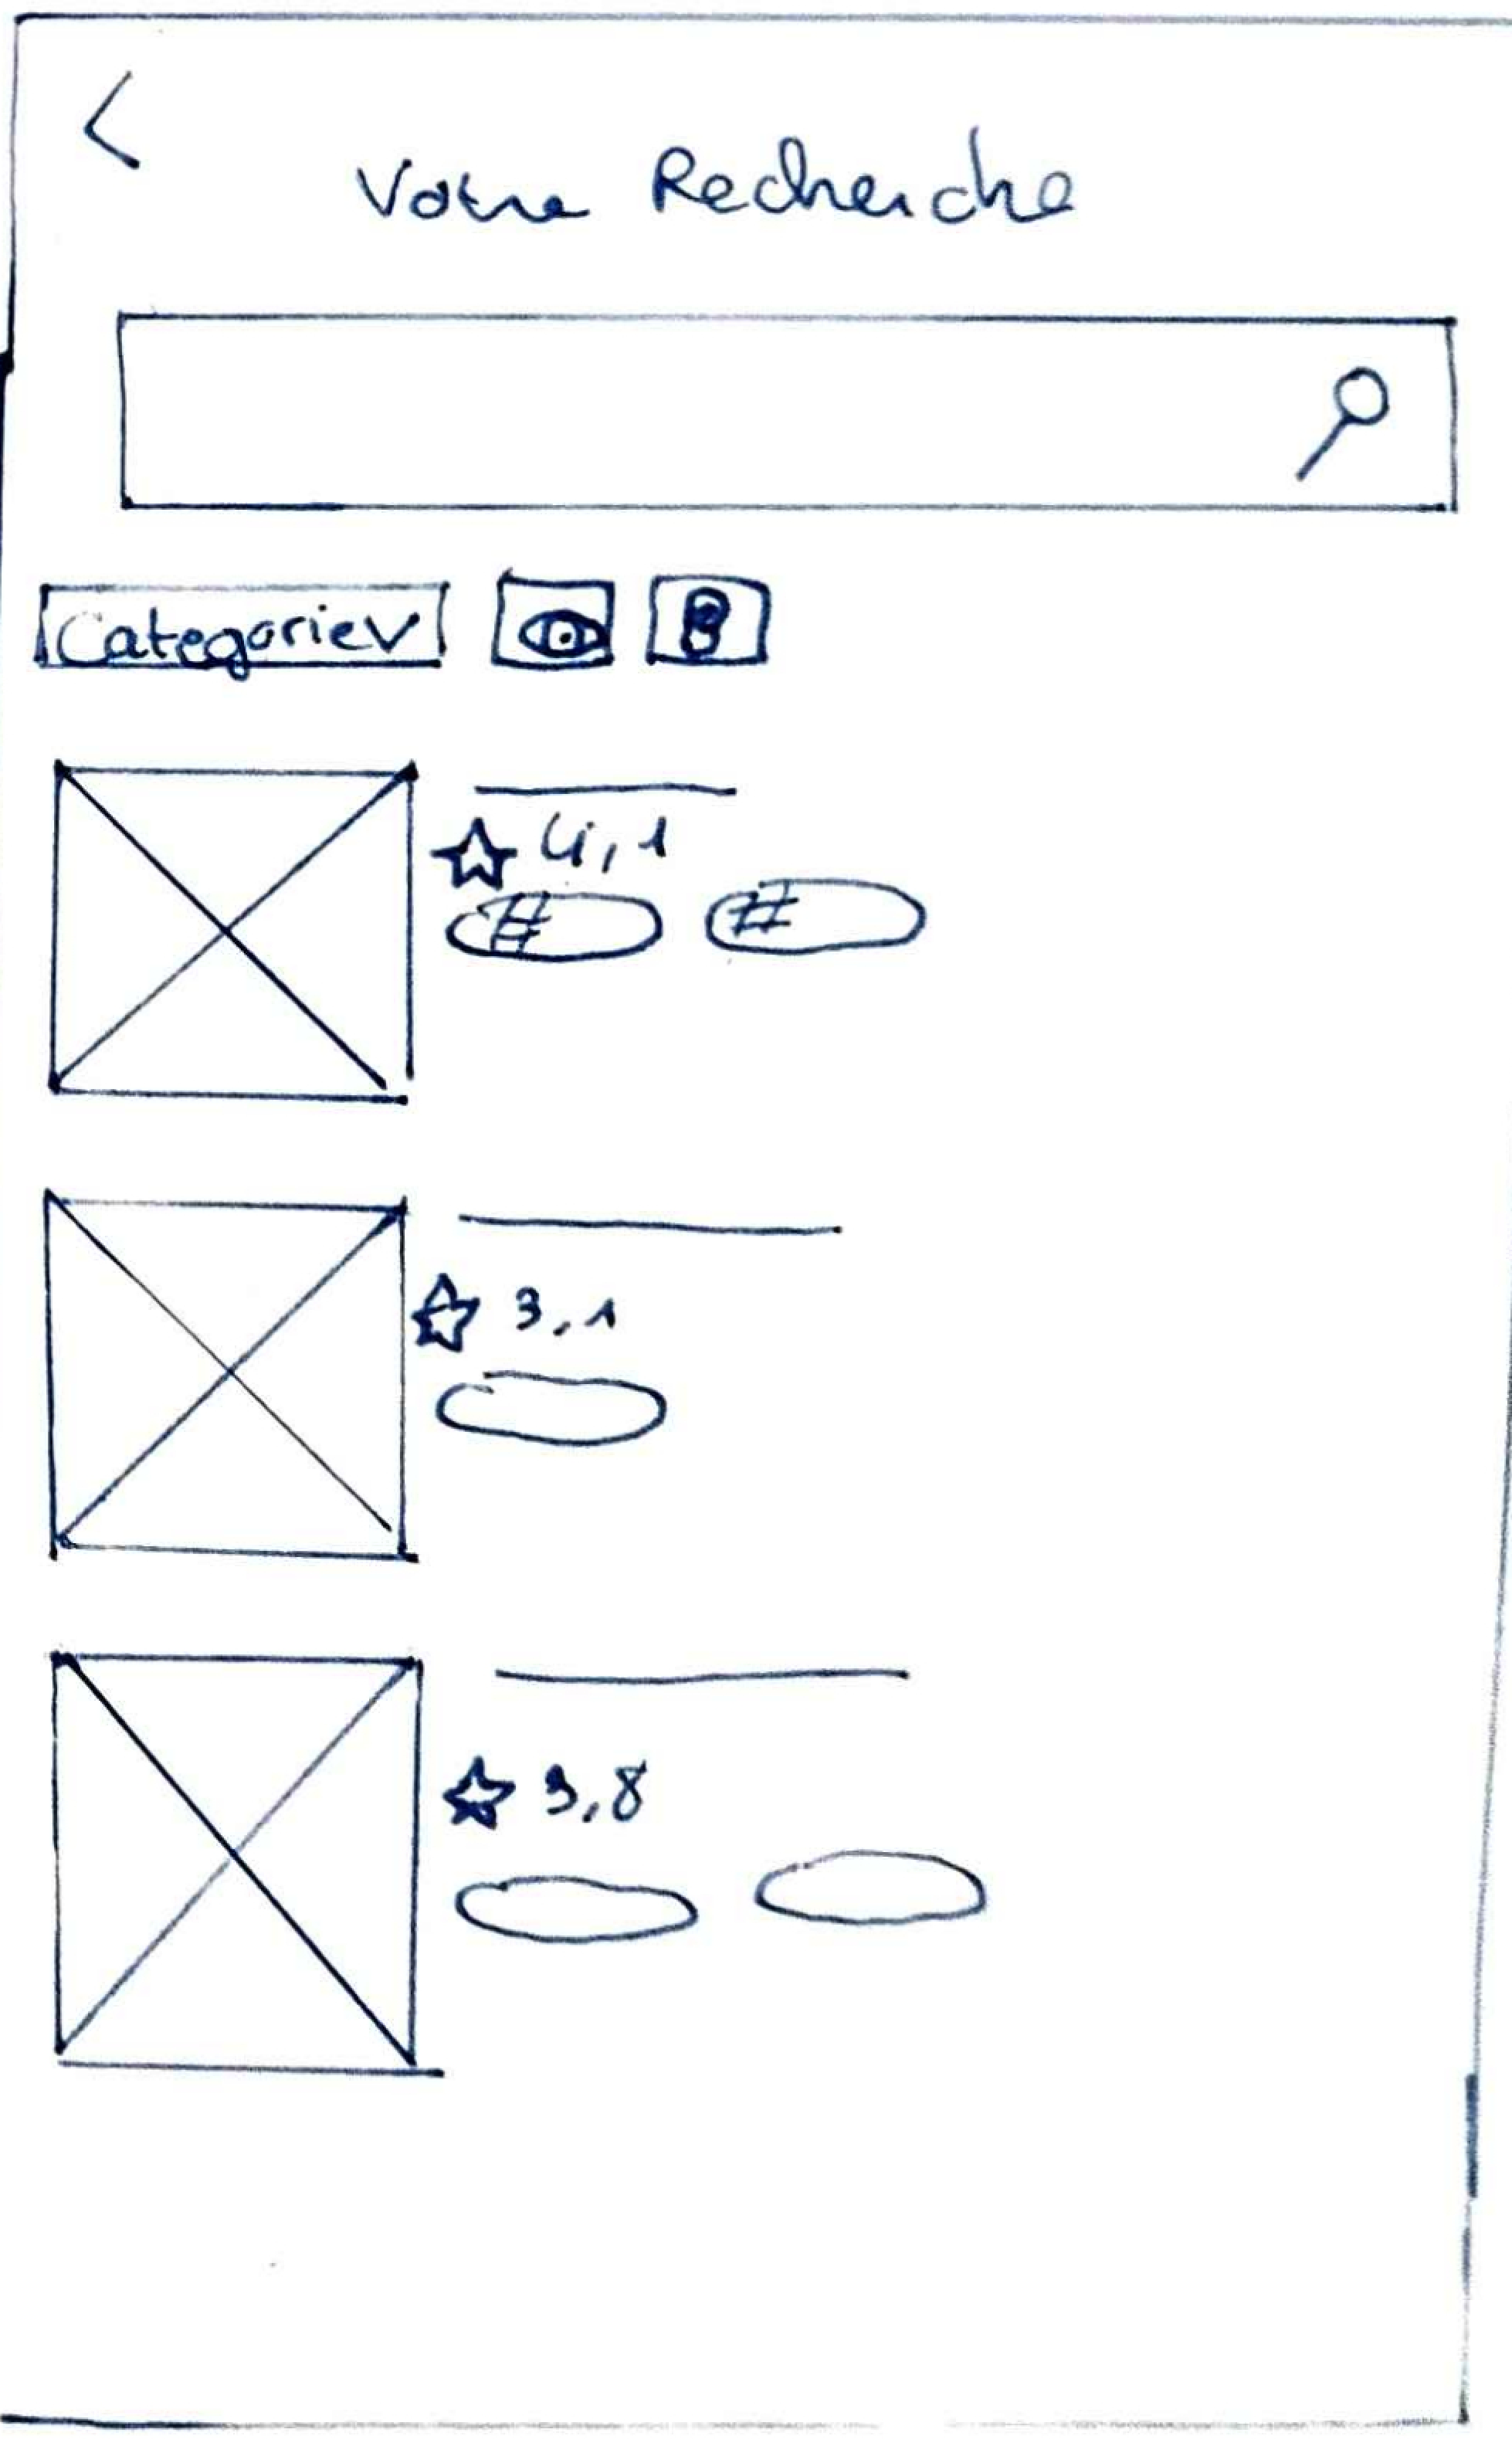 Votre Recherche
Categorie
4,1
# #
3,1
3,8